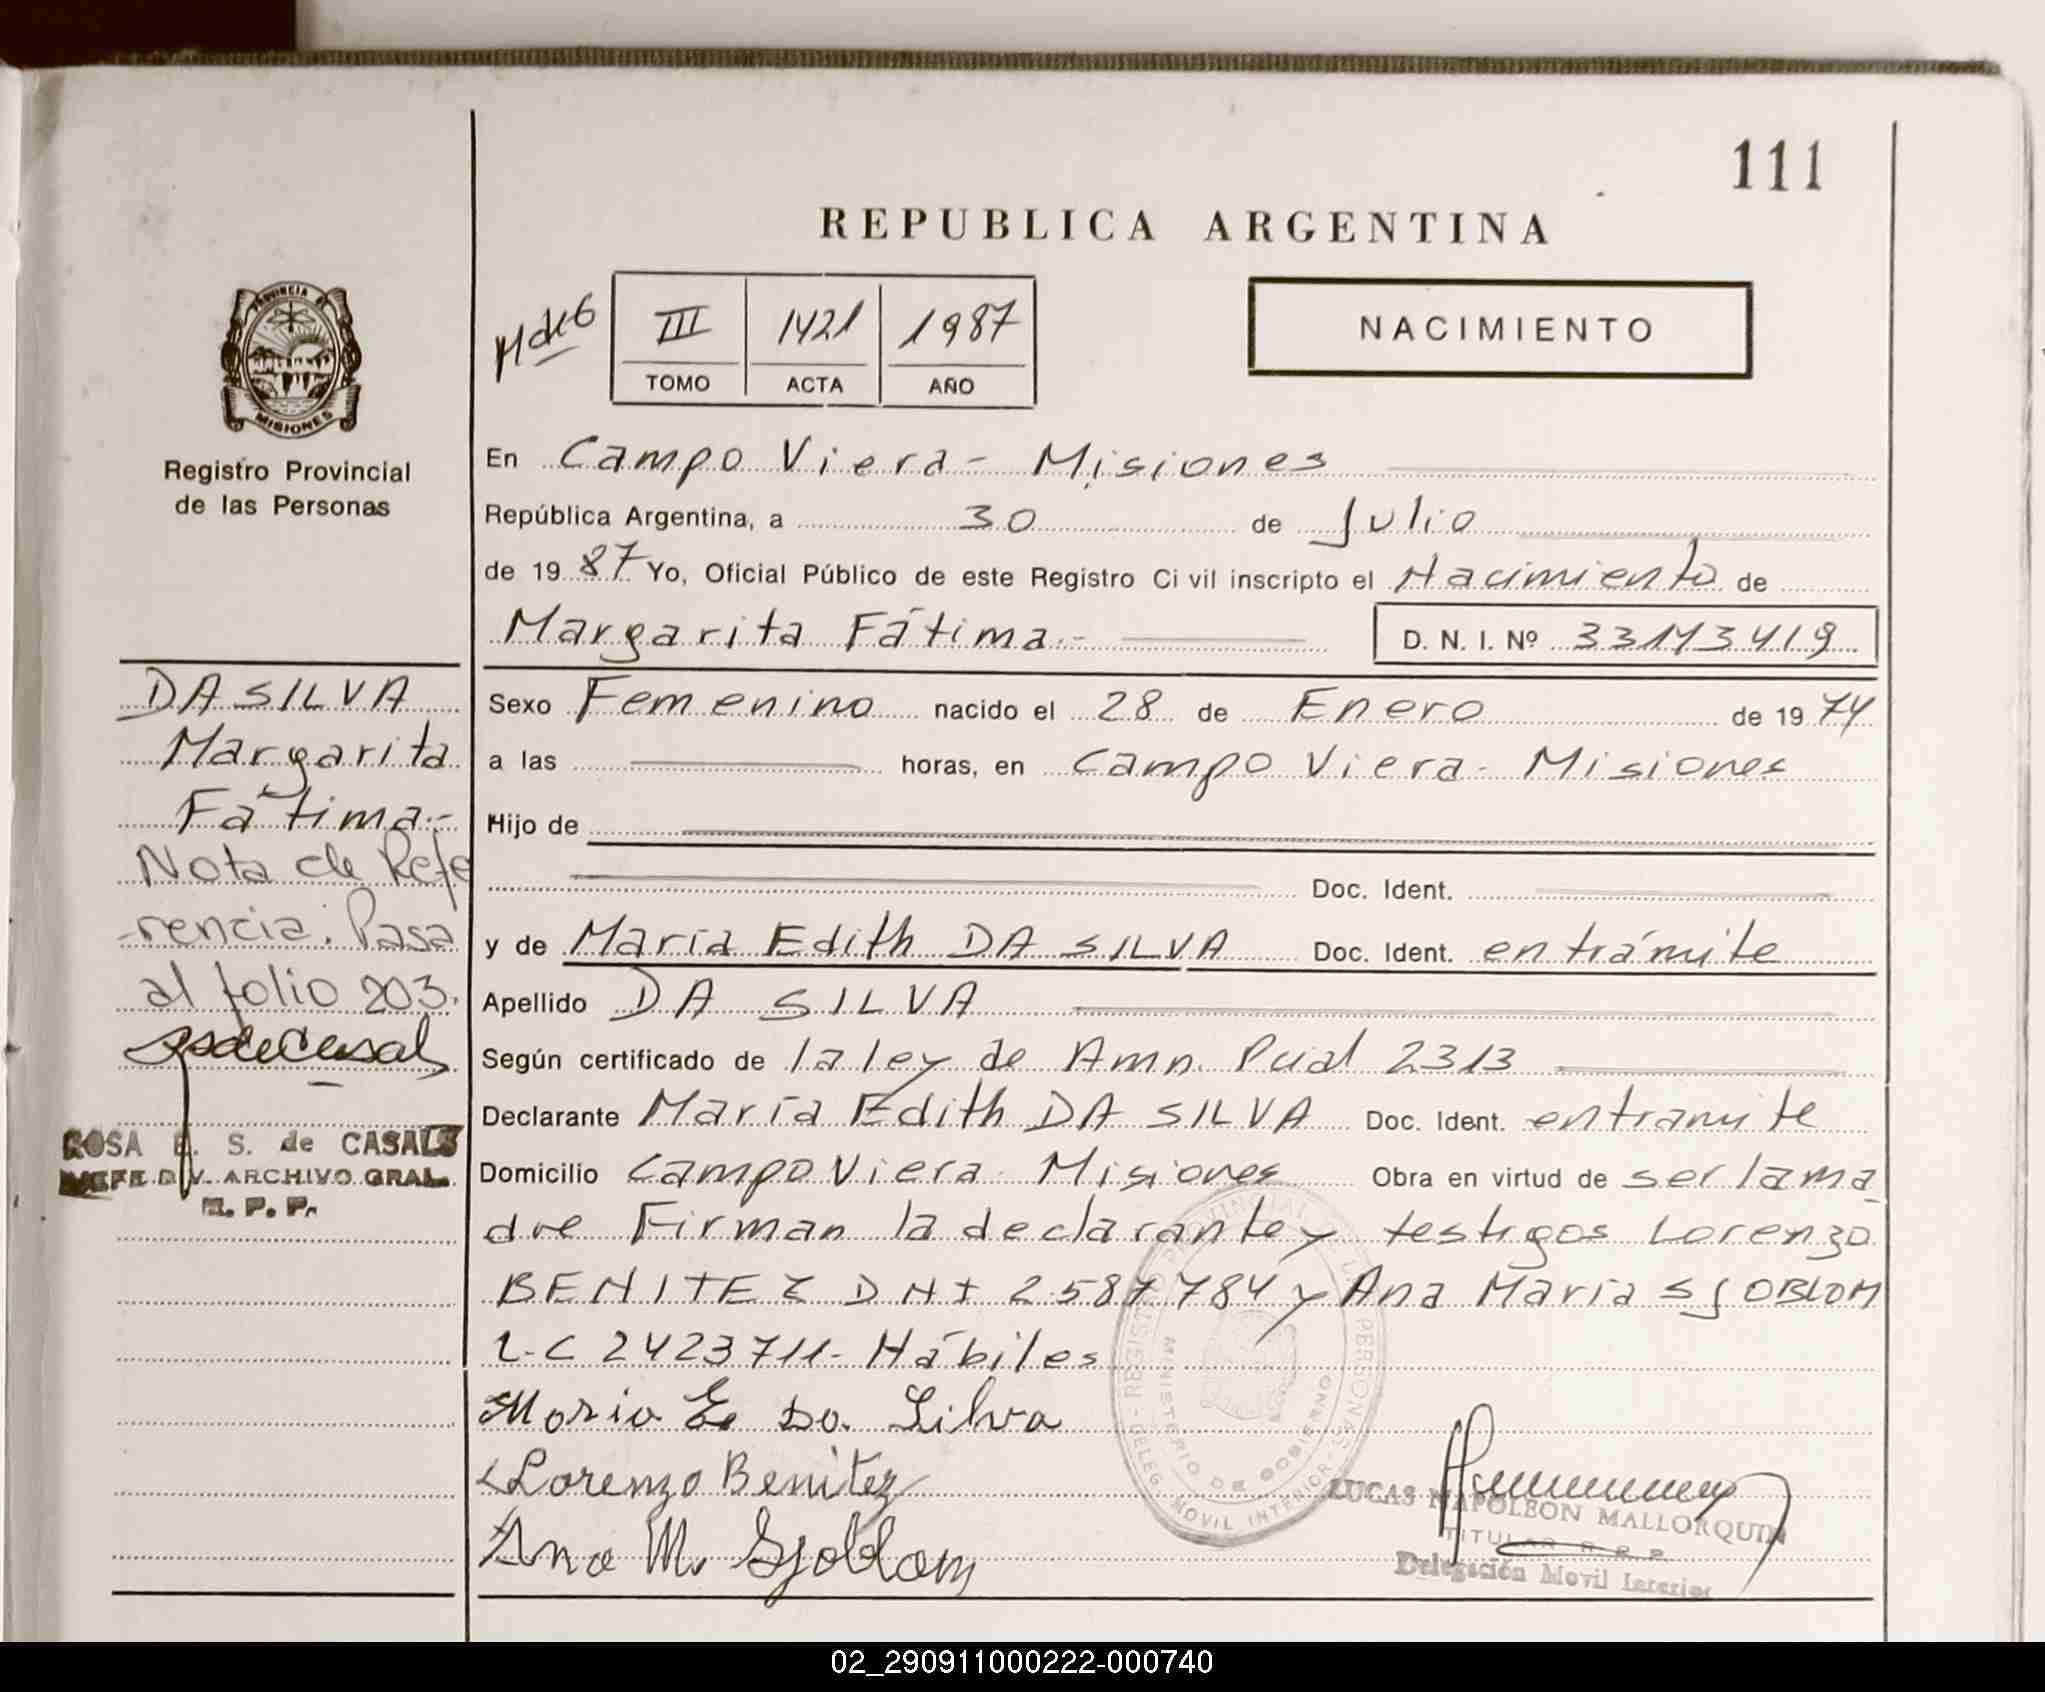 111
REPUBLICA ARGENTINA
PROVINCIA DE
MISIONES
Registro Provincial
de las Personas
III 1421 1987
TOMO ACTA AÑO
NACIMIENTO
En Campo Viera - Misiones
República Argentina, a 30 de Julio
de 1987 Yo, Oficial Público de este Registro Civil inscripto el Nacimiento de
Margarita Fátima.- D. N. I. Nº 33143419
DA SILVA
Margarita
Fátima.-
Nota de Refe
rencia: Pasa
al folio 203.
ROSA E. S. de CASALS
JEFE DIV. ARCHIVO GRAL.
R. P. P.
Sexo Femenino nacido el 28 de Enero de 1974
a las horas, en Campo Viera - Misiones
Hijo de
Doc. Ident.
y de María Edith DA SILVA Doc. Ident. en trámite
Apellido DA SILVA
Según certificado de la ley de Amn. Pcial 2313
Declarante María Edith DA SILVA Doc. Ident. en tramite
Domicilio Campo Viera - Misiones Obra en virtud de ser la ma
dre Firman la declarante y testigos Lorenzo
BENITEZ DNI 2587784 y Ana María SJOBLOM
L-C 2423711- Hábiles
Maria E. Da Silva
Lorenzo Benitez
Ana M. Sjoblom
LUCAS NAPOLEON MALLORQUIN
TITULAR R. P. P.
Delegación Movil Interior
02_290911000222-000740